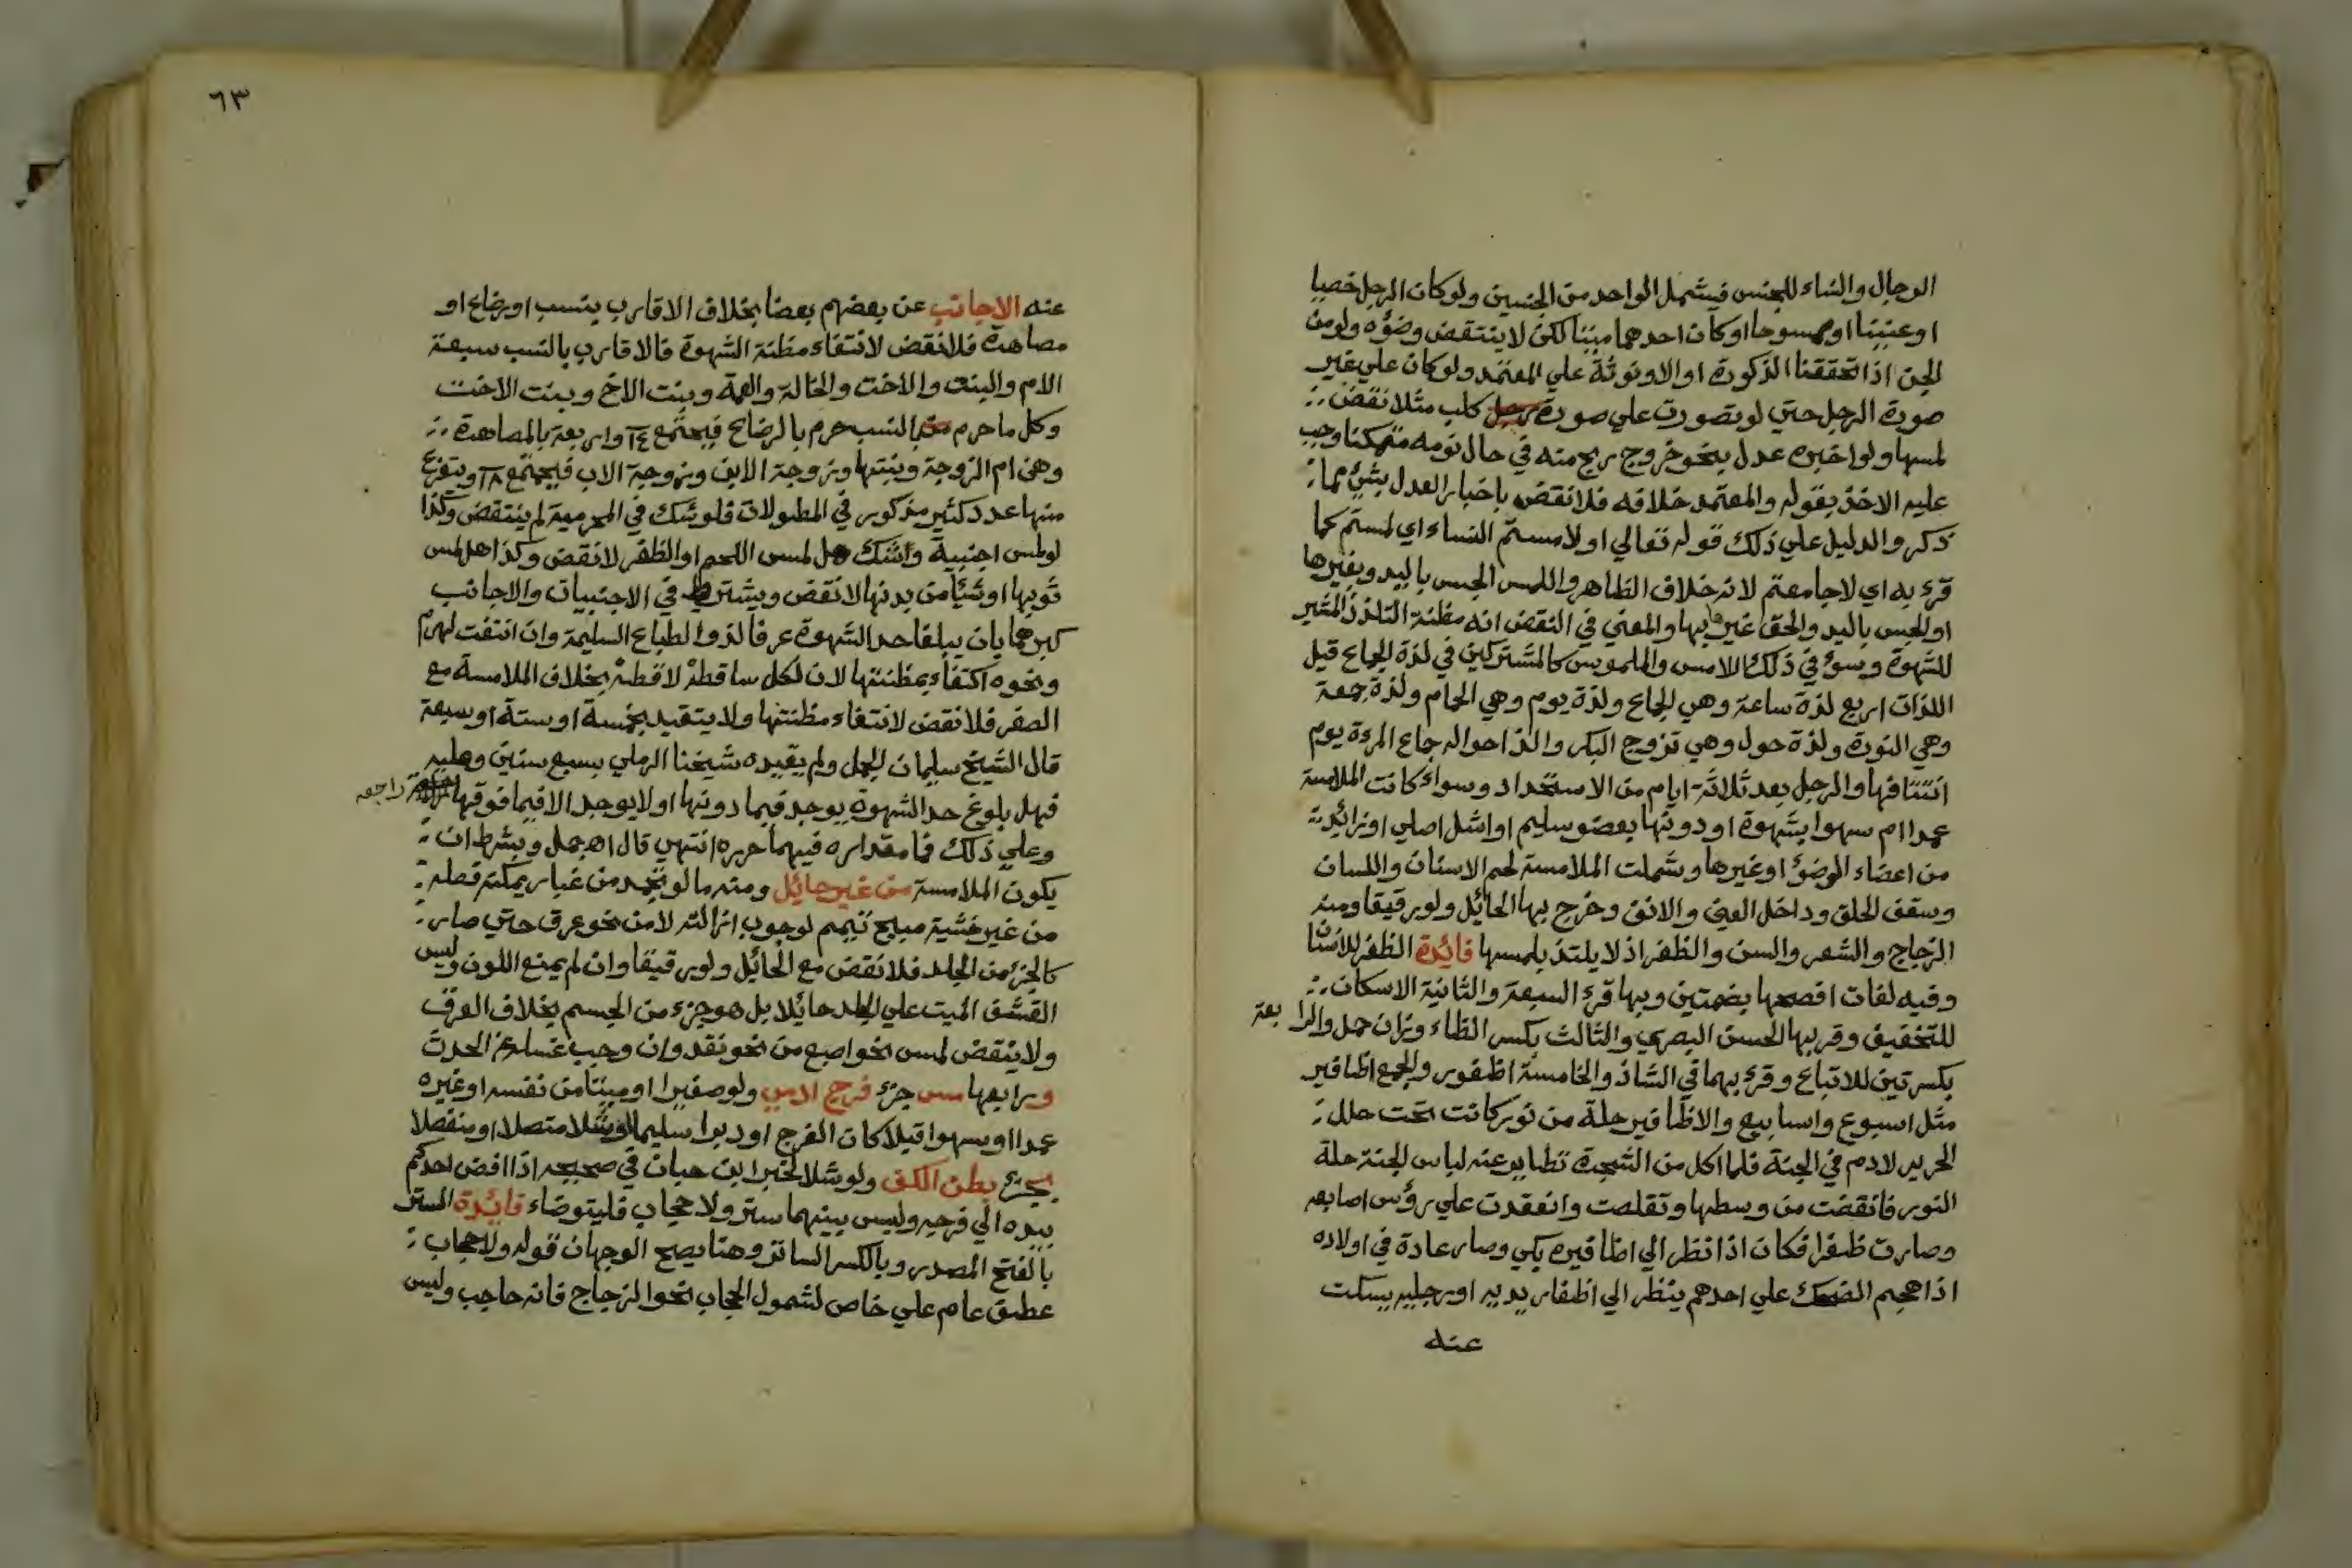 الرجال والنساء للجنس فيشمل الواحد من الجنسين ولو كان الرجل خصيا
او عنينا او ممسوحا او كان احدهما ميتا لكن لا ينتقض وضؤه ولو من
الجن اذا تحققنا الذكورة او الانوثة علي المعتمد ولو كان علي غير
صورة الرجل حتي لو تصورت علي صورة كلب مثلا نقض
لمسها ولو اخبره عدل بنحو خروج ريح منه في حال نومه متمكنا وجب
عليه الاخذ بقوله والمعتمد خلافه فلا نقض باخبار العدل بشئ مما
ذكر والدليل علي ذلك قوله تعالي او لامستم النساء اي لمستم كما
قرئ به اي لا جامعتم لانه خلاف الظاهر واللمس الجس باليد وبغيرها
او الجس باليد والحق غيرها بها والمعني في النقض انه مظنة التلذذ المثير
للشهوة وسوي في ذلك اللامس والملموس كالمشتركين في لذة الجماع قيل
اللذات اربع لذة ساعة وهي الجماع ولذة يوم وهي الحمام ولذة جمعة
وهي النورة ولذة حول وهي تزوج البكر والذ احواله جماع المرءة يوم
انتتافها والرجل بعد ثلاثة ايام من الاستحداد وسواء كانت الملامسة
عمدا ام سهوا بشهوة او دونها بعضو سليم او اشل اصلي او زائد
من اعضاء الوضؤ او غيرها وشملت الملامسة لحم الاسنان واللسان
وسقف الحلق وداخل العين والانف وخرج بها الحائل ولو رقيقا ومنه
الزجاج والشعر والسن والظفر اذ لا يلتذ بلمسها فائدة الظفر للانسان
وفيه لغات افصحها بضمتين وبها قرئ السبعة والثانية الاسكان
للتخفيف وقر بها الحسن البصري والثالث بكسر الظاء وزان حمل والرابعة
بكسرتين للاتباع وقرئ بهما في الشاذ والخامسة اظفور والجمع اظافير
مثل اسبوع واسابيع والاظافير حلة من نور كانت تحت حلل
الحرير لادم في الجنة فلما اكل من الشجرة تطاير عنه لباس الجنة حلة
النور فانقضت من وسطها وتقلصت وانعقدت علي رؤس اصابعه
وصارت ظفرا فكان اذا نظر الي اظافيره بكي وصار عادة في اولاده
اذا هجم الضحك علي احدهم ينظر الي اظفار يديه او رجليه يسكت
عنه
٦٣
عنه الاجانب عن بعضهم بعضا بخلاف الاقارب بنسب او رضاع او
مصاهرة فلا نقض لانتفاء مظنة الشهوة فالاقارب بالنسب سبعة
الام والبنت والاخت والخالة والعمة وبنت الاخ وبنت الاخت
وكل ما حرم بالنسب حرم بالرضاع فيجتمع ١٤ واربعة بالمصاهرة
وهن ام الزوجة وبنتها وزوجة الابن وزوجة الاب فيجتمع ١٨ ويتفرع
منها عدد كثير مذكور في المطولات فلو شك في المحرمية لم ينتقض وكذا
لو لمس اجنبية وشك هل لمس اللحم او الظفر لا نقض وكذا هل لمس
ثوبها او شيئا من بدنها لا نقض ويشترط في الاجنبيات والاجانب
كبرهما بان يبلغا حد الشهوة عرفا لذوا لطباع السليمة وان انتفت لهرم
ونحوه اكتفاء بمظنتها لان لكل ساقطة لاقطة بخلاف الملامسة مع
الصغر فلا نقض لانتفاء مظنتها ولا يتقيد بخمسة او ستة او سبعة
قال الشيخ سليمان الجمل ولم يقيده شيخنا الرملي بسبع سنين وعليه
فهل بلوغ حد الشهوة يوجد فيما دونها او لا يوجد الا فيما فوقها راجعه
وعلي ذلك فما مقداره فيهما حرره انتهي قال اه جمل وبشرط ان
يكون الملامسة من غير حائل ومنه ما لو تجمد من غبار يمكنه فصله
من غير خشية مبيح تيمم لوجوب ازالته لا من نحو عرق حتي صار
كالجزء من الجلد فلا نقض مع الحائل ولو رقيقا وان لم يمنع اللون وليس
القشف الميت علي الجلد حائلا بل هو جزء من الجسم بخلاف العرق
ولا ينتقض لمس نحو اصبع من نحو نقد وان وجب غسله عن الحدث
ورابعها مس جزء فرج الادمي ولو صغيرا او ميتا من نفسه او غيره
عمدا او سهوا قبلا كان الفرج او دبرا سليما او اشلا متصلا او منفصلا
بطن الكف ولو شلا لخبر ابن حبان في صحيحه اذا افضي احدكم
بيده الي فرجه وليس بينهما ستر ولا حجاب فليتوضاء فائدة الستر
بالفتح المصدر وبالكسر الساتر وهنا يصح الوجهان قوله ولا حجاب
عطف عام علي خاص لشمول الحجاب نحو الزجاج فانه حاجب وليس